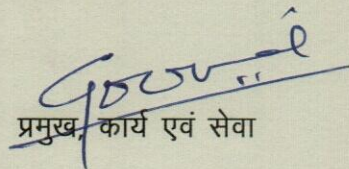 प्रमुख, कार्य एवं सेवा